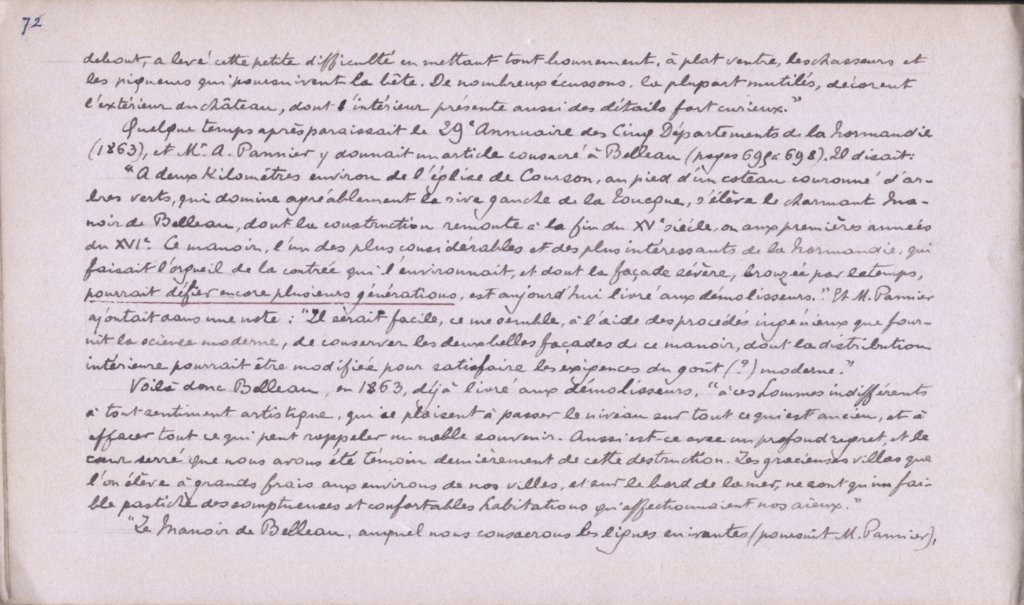 72
debout, a levé cette petite difficulté en mettant tout bonnement, à plat ventre, les chasseurs et
les piqueurs qui poursuivent la bête. De nombreux écussons, la plupart mutilés, décorent
l'extérieur du château, dont l'intérieur présente aussi des détails fort curieux."
Quelque temps après paraissait le 29e Annuaire des Cinq Départements de la Normandie
(1863), et Mr. A. Pannier y donnait un article consacré à Belleau (pages 695 à 698). Il disait:
"A deux Kilomètres environ de l'église de Courson, au pied d'un coteau couronné d'ar-
bres verts, qui domine agréablement la rive gauche de la Touque, s'élève le charmant Ma-
noir de Belleau, dont la construction remonte à la fin du XVe siècle, ou aux premières années
du XVIe. Ce manoir, l'un des plus considérables et des plus intéressants de la Normandie, qui
faisait l'orgueil de la contrée qui l'environnait, et dont la façade sévère, bronzée par le temps,
pourrait défier encore plusieurs générations, est aujourd'hui livré aux démolisseurs." Et M. Pannier
ajoutait dans une note : "Il serait facile, ce me semble, à l'aide des procédés ingénieux que four-
nit la science moderne, de conserver les deux belles façades de ce manoir, dont la distribution
intérieure pourrait être modifiée pour satisfaire les exigences du goût (?) moderne."
Voilà donc Belleau, en 1863, déjà livré aux démolisseurs, "à ces hommes indifférents
à tout sentiment artistique, qui se plaisent à passer le niveau sur tout ce qui est ancien, et à
effacer tout ce qui peut rappeler un noble souvenir. Aussi est-ce avec un profond regret, et le
cœur serré que nous avons été témoin dernièrement de cette destruction. Les gracieuses villas que
l'on élève à grands frais aux environs de nos villes, et sur le bord de la mer, ne sont qu'un fai-
ble pastiche des somptueuses et confortables habitations qu'affectionnaient nos aïeux."
"Le Manoir de Belleau, auquel nous consacrons les lignes suivantes (poursuit M. Pannier),